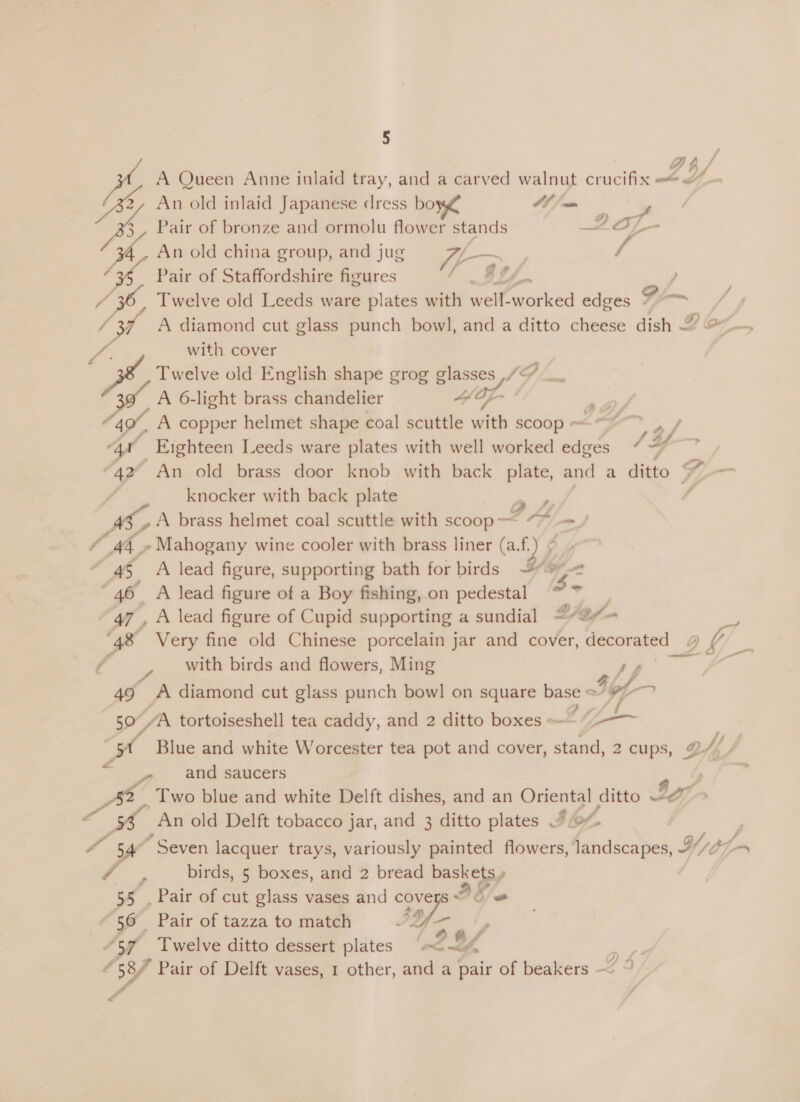 5
31, A Queen Anne inlaid tray, and a carved walnut crucifix
32, An old inlaid Japanese dress box
33, Pair of bronze and ormolu flower stands
34, An old china group, and jug
35 Pair of Staffordshire figures
36, Twelve old Leeds ware plates with well-worked edges
37 A diamond cut glass punch bowl, and a ditto cheese dish
with cover
38, Twelve old English shape grog glasses
39 A 6-light brass chandelier
40, A copper helmet shape coal scuttle with scoop
41 Eighteen Leeds ware plates with well worked edges
42 An old brass door knob with back plate, and a ditto
knocker with back plate
43, A brass helmet coal scuttle with scoop
44, Mahogany wine cooler with brass liner (a.f.)
45 A lead figure, supporting bath for birds
46 A lead figure of a Boy fishing, on pedestal
47, A lead figure of Cupid supporting a sundial
48 Very fine old Chinese porcelain jar and cover, decorated
with birds and flowers, Ming
49 A diamond cut glass punch bowl on square base
50 A tortoiseshell tea caddy, and 2 ditto boxes
51 Blue and white Worcester tea pot and cover, stand, 2 cups,
and saucers
52 Two blue and white Delft dishes, and an Oriental ditto
53 An old Delft tobacco jar, and 3 ditto plates
54 Seven lacquer trays, variously painted flowers, landscapes,
birds, 5 boxes, and 2 bread baskets
55 Pair of cut glass vases and covers
56 Pair of tazza to match
57 Twelve ditto dessert plates
58 Pair of Delft vases, 1 other, and a pair of beakers